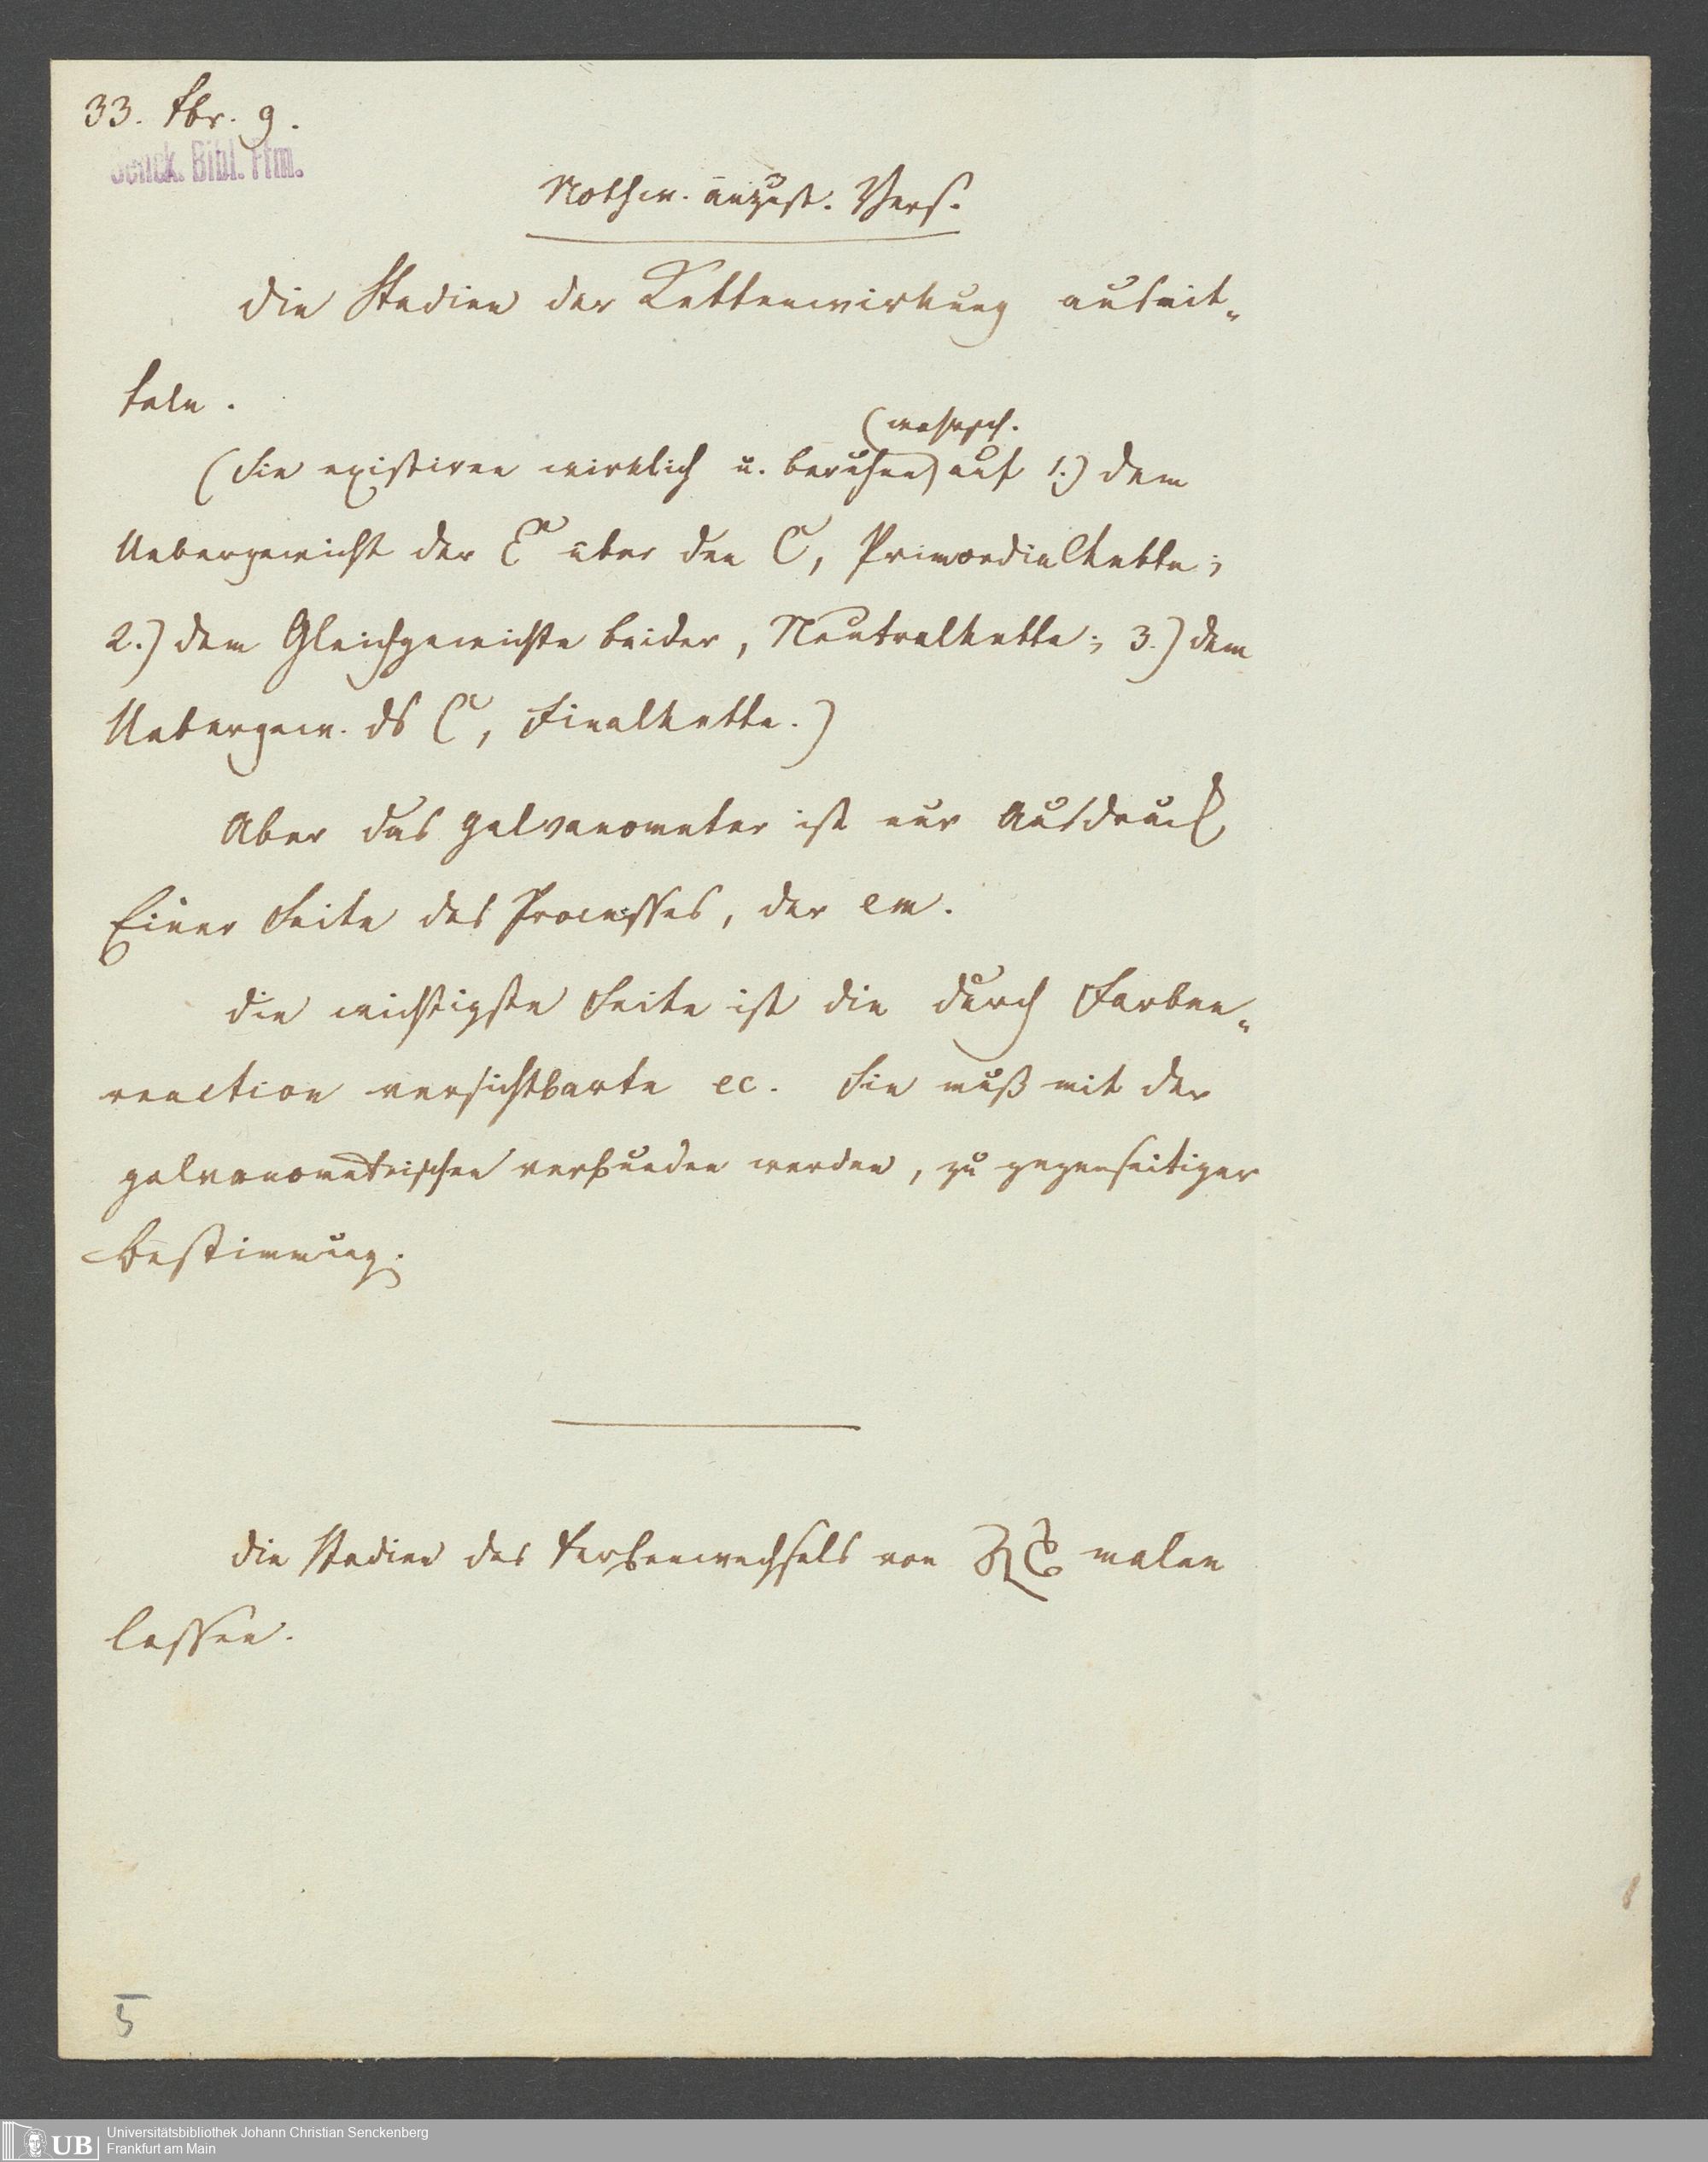 33. Fbr. 9.
Senck. Bibl. Ffm.
Nothw. anzust. Vers.
Die Stadien der Kettenwirkung ausmit-
teln.
(wahrsch.
(Sie existiren wirklich u. beruhen) auf 1.) dem
Uebergewicht der E über den C, Primordialkette;
2.) dem Gleichgewichte beider, Neutralkette; 3.) dem
Uebergew. ds C, Finalkette.)
Aber das Galvanometer ist nur Ausdruck
Einer Seite des Processes, der em.
Die wichtigste Seite ist die durch Farben-
reaction versichtbarte ec. Sie muß mit der
galvanometrischen verbunden werden, zu gegenseitiger
Bestimmung.
Die Stadien des Farbenwechsels von malen
lassen.
5
UB
Universitätsbibliothek Johann Christian Senckenberg
Frankfurt am Main